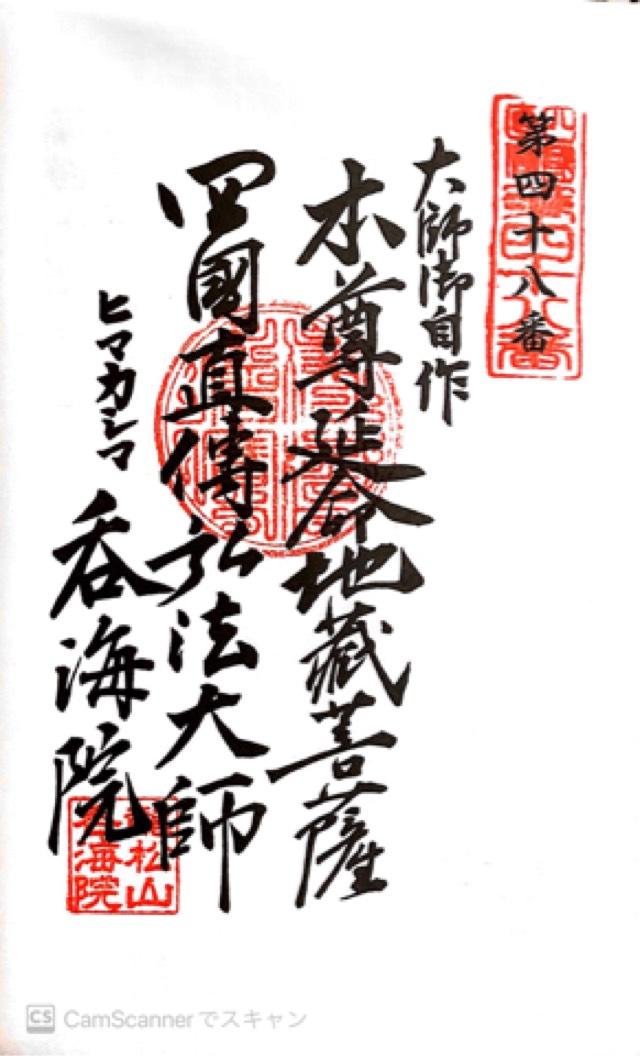 第四十八番
大師御自作
本尊延命地藏菩薩
四國直傳弘法大師
ヒマカシマ
呑海院
松山
呑海院
CS CamScannerでスキャン